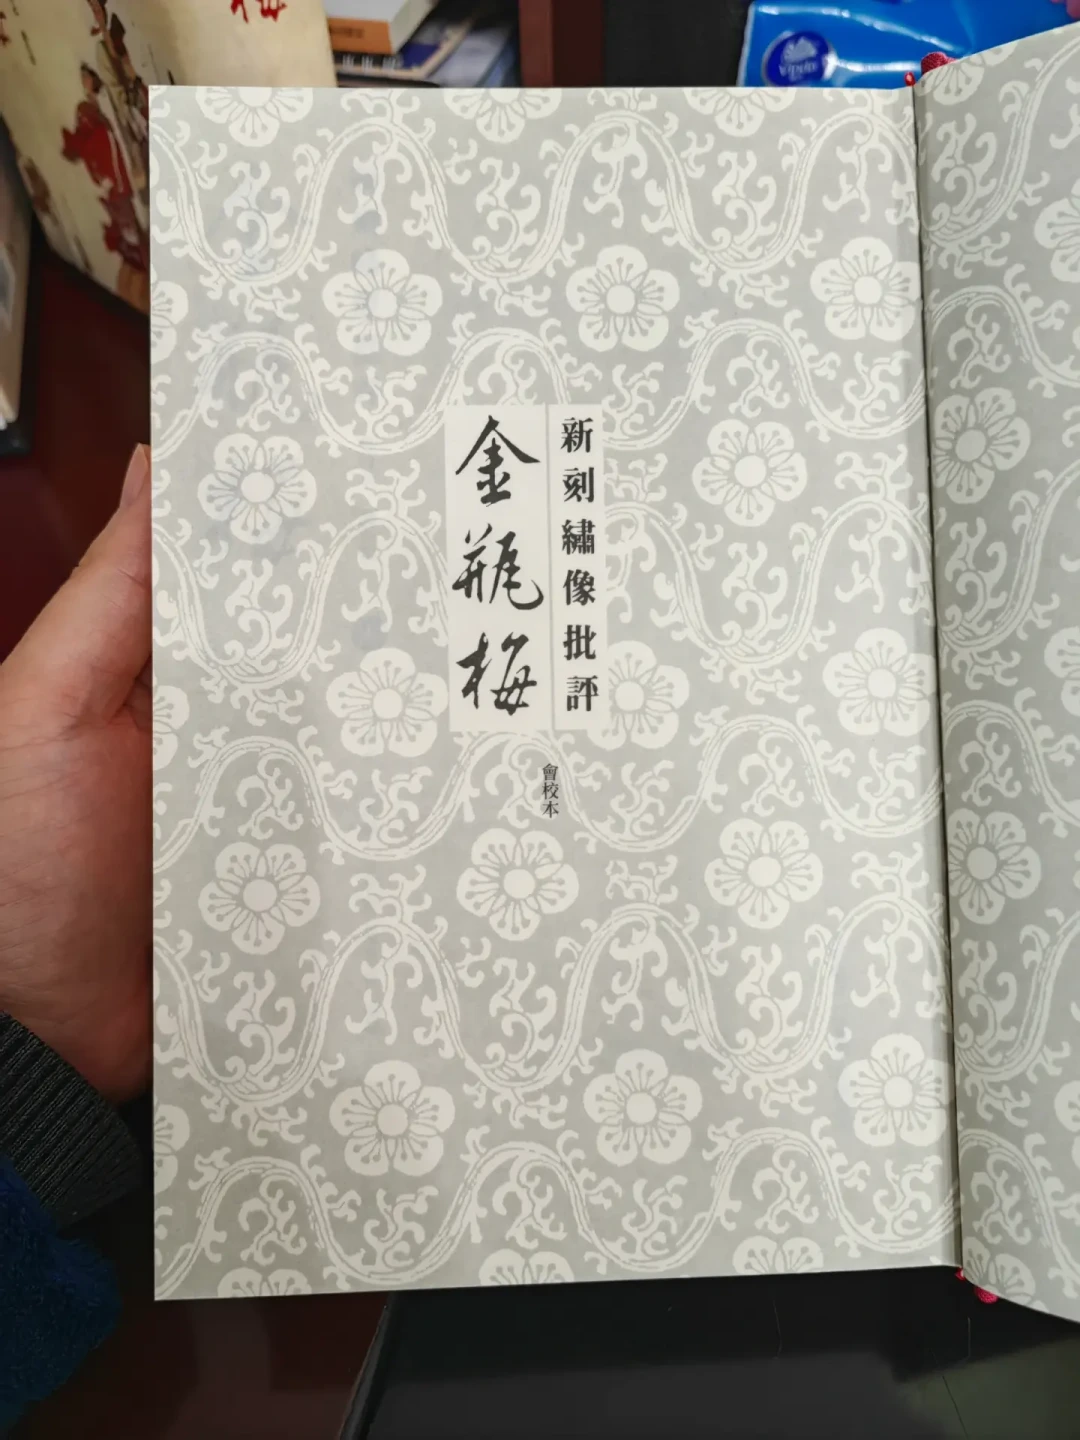 新刻繡像批評
金瓶梅
會校本
梅
Vinda